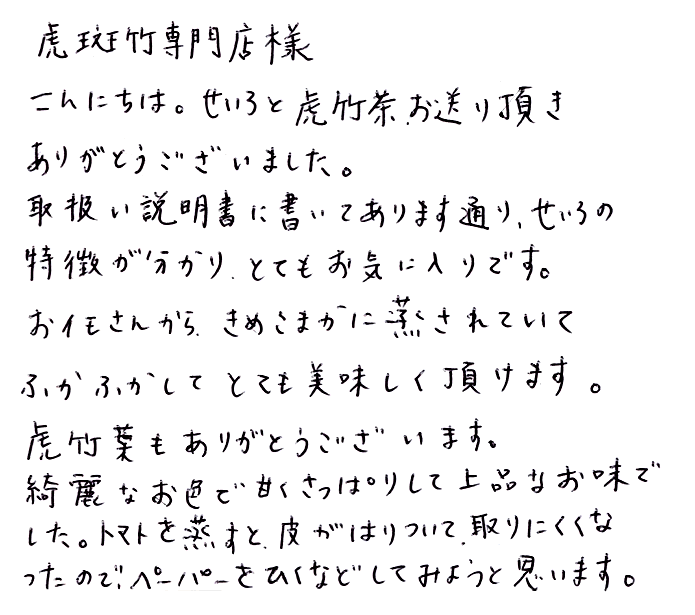 虎斑竹専門店様
こんにちは。せいろと虎竹茶、お送り頂き
ありがとうございました。
取扱い説明書に書いてあります通り、せいろの
特徴が分かり、とてもお気に入りです。
おイモさんから、きめこまかに蒸されていて
ふかふかしてとても美味しく頂けます。
虎竹葉もありがとうございます。
綺麗なお色で甘くさっぱりして上品なお味で
した。トマトを蒸すと、皮がはりついて、取りにくくな
ったので、ペーパーをひくなどしてみようと思います。